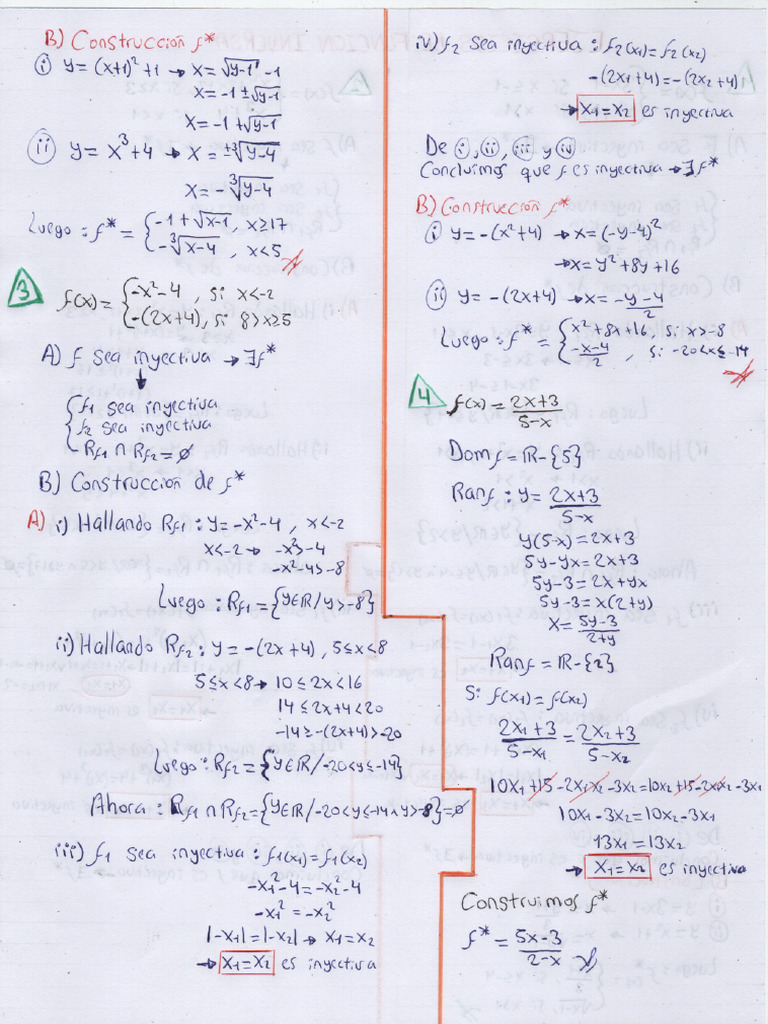 B) Construcción f*
i) y = (x+1)² + 1 → x = √(y-1) - 1
x = -1 ± √(y-1)
x = -1 + √(y-1)
ii) y = x³ + 4 → x = ±³√(y-4)
x = -³√(y-4)
Luego : f* = { -1 + √(x-1), x ≥ 17
-³√(x-4), x < 5
3
f(x) = { -x² - 4, si: x < -2
-(2x+4), si: 8 > x ≥ 5
A) f sea inyectiva → ∃f*
↓
{ f1 sea inyectiva
f2 sea inyectiva
Rf1 ∩ Rf2 = ∅
B) Construccion de f*
A) i) Hallando Rf1 : y = -x² - 4, x < -2
x < -2 → -x² > -4
-x² - 4 > -8
Luego : Rf1 = {y∈R / y > -8}
ii) Hallando Rf2 : y = -(2x+4), 5 ≤ x < 8
5 ≤ x < 8 → 10 ≤ 2x < 16
14 ≤ 2x+4 < 20
-14 ≥ -(2x+4) > -20
Luego : Rf2 = {y∈R / -20 < y ≤ -14}
Ahora : Rf1 ∩ Rf2 = {y∈R / -20 < y ≤ -14 ∧ y > -8} = ∅
iii) f1 sea inyectiva : f1(x1) = f1(x2)
-x1² - 4 = -x2² - 4
-x1² = -x2²
|-x1| = |-x2| → x1 = x2
→ x1 = x2 es inyectiva
iv) f2 sea inyectiva : f2(x1) = f2(x2)
-(2x1+4) = -(2x2+4)
→ x1 = x2 es inyectiva
De i, ii, iii y iv
Concluimos que f es inyectiva → ∃f*
B) Construcción f*
i) y = -(x²+4) → x = (-y-4)²
→ x = y² + 8y + 16
ii) y = -(2x+4) → x = (-y-4)/2
Luego : f* = { x² + 8x + 16, si x > -8
(-x-4)/2, si -20 < x ≤ -14
4
f(x) = (2x+3)/(5-x)
Dom f = R - {5}
Ran f : y = (2x+3)/(5-x)
y(5-x) = 2x+3
5y - yx = 2x+3
5y - 3 = 2x + yx
5y - 3 = x(2+y)
x = (5y-3)/(2+y)
Ran f = R - {2}
Si f(x1) = f(x2)
(2x1+3)/(5-x1) = (2x2+3)/(5-x2)
10x1 + 15 - 2x1x2 - 3x2 = 10x2 + 15 - 2x1x2 - 3x1
10x1 - 3x2 = 10x2 - 3x1
13x1 = 13x2
→ x1 = x2 es inyectiva
Construimos f*
f* = (5x-3)/(2-x)